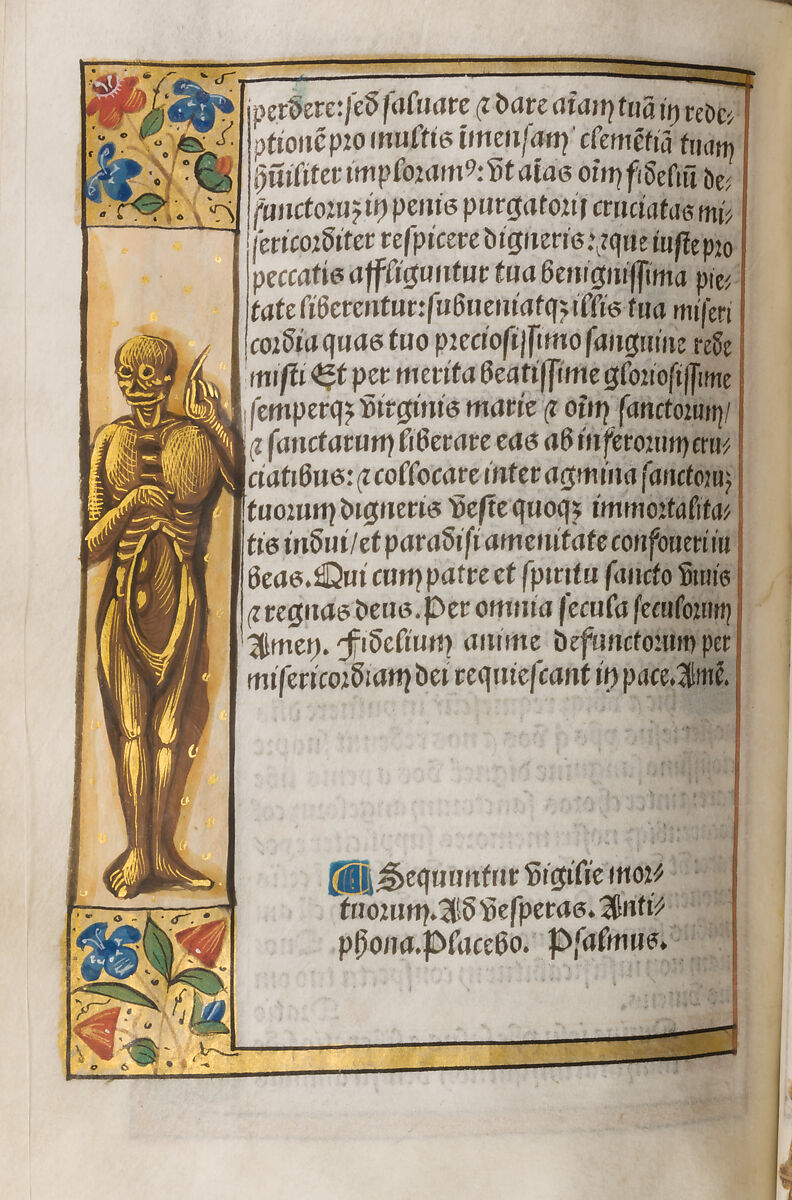 perdere: sed saluare ⁊ dare aīam tuā in redē⸗
ptionē pro multis īmensam clemētiā tuam
hūiliter imploramꝰ: vt aīas oīm fideliū de⸗
functoruꝫ in penis purgatorij cruciatas mi⸗
sericorditer respicere digneris: ⁊ que iuste pro
peccatis affliguntur tua benignissima pie⸗
tate liberentur: subueniatqꝫ illis tua miseri
cordia quas tuo preciosissimo sanguine rede
misti Et per merita beatissime gloriosissime
semperqꝫ virginis marie ⁊ oīm sanctorum/
⁊ sanctarum liberare eas ab inferorum cru⸗
ciatibus: ⁊ collocare inter agmina sanctoruꝫ
tuorum digneris veste quoqꝫ immortalita⸗
tis indui/ et paradisi amenitate confoueri iu
beas. Qui cum patre et spiritu sancto viuis
⁊ regnas deus. Per omnia secula seculorum
Amen. Fidelium anime defunctorum per
misericordiam dei requiescant in pace. Amē.
Sequuntur vigilie mor⸗
tuorum. Ad vesperas. Anti⸗
phona. Placebo. Psalmus.